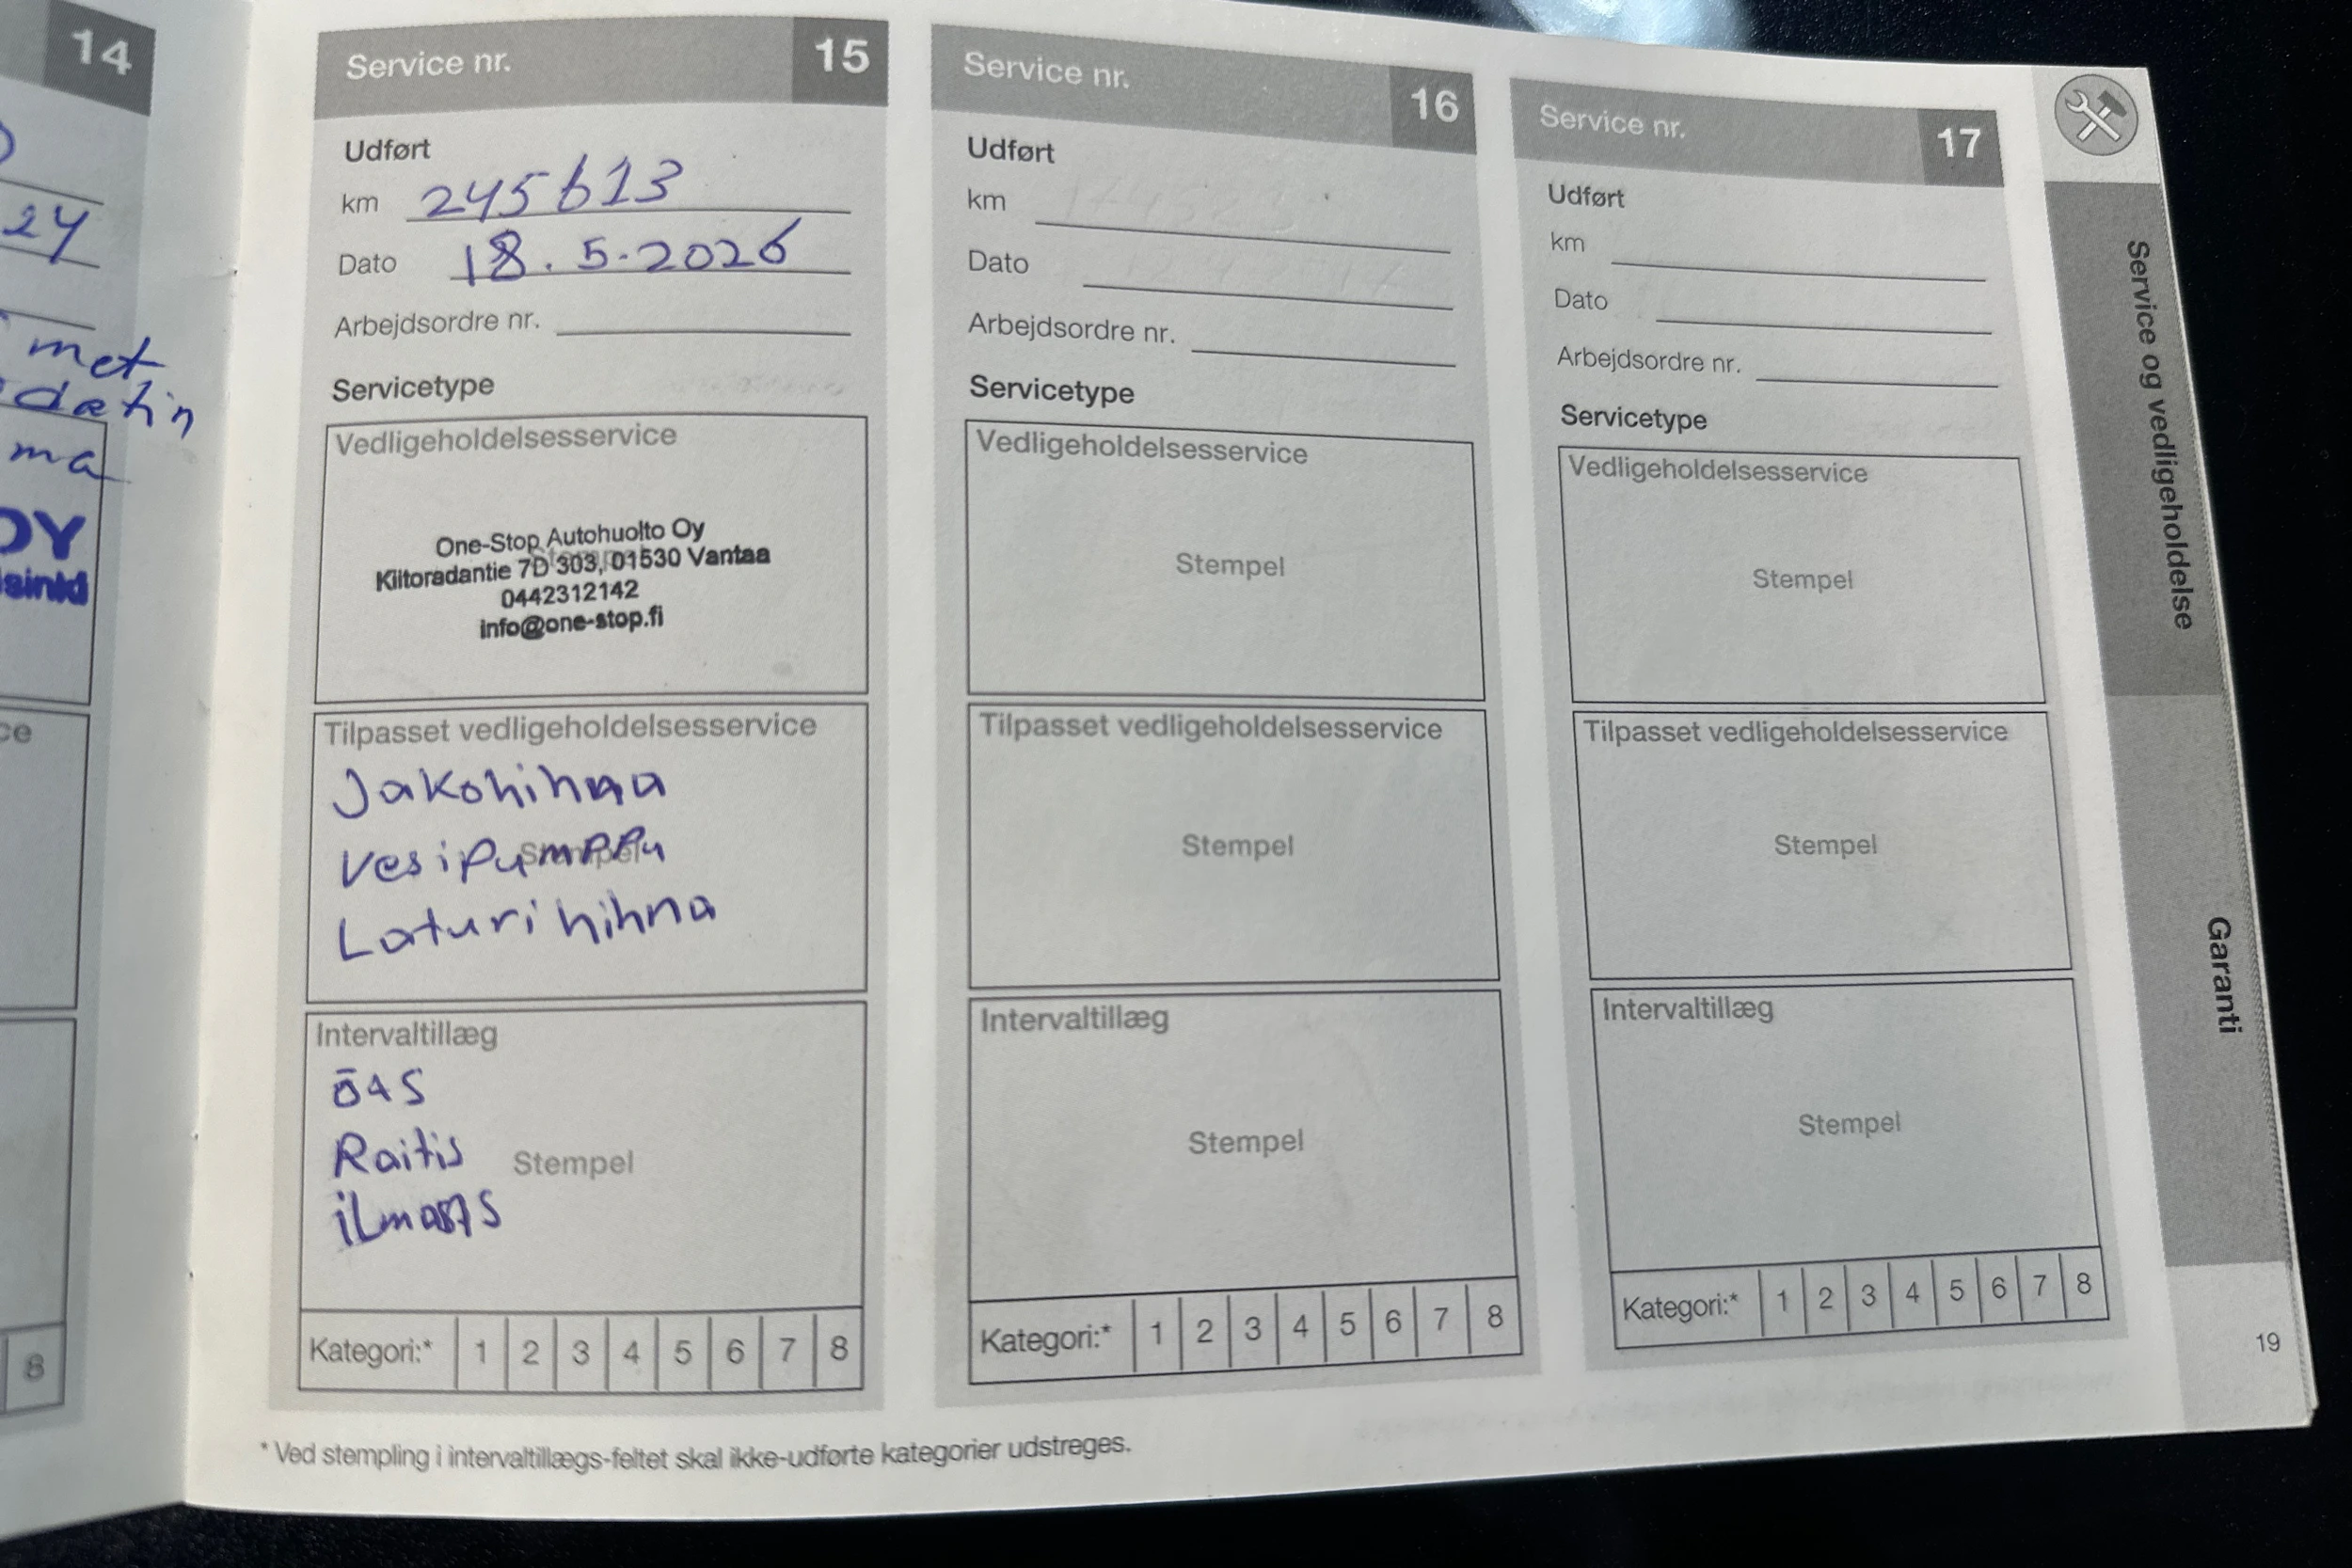 14
24
met
dætin
ma
OY
sinki
ce
8
Service nr. 15
Udført
km 245613
Dato 18.5.2026
Arbejdsordre nr.
Servicetype
Vedligeholdelsesservice
Stempel
One-Stop Autohuolto Oy
Kiitoradantie 7D 303, 01530 Vantaa
0442312142
info@one-stop.fi
Tilpasset vedligeholdelsesservice
Stempel
Jakohihna
Vesipumppu
Laturihihna
Intervaltillæg
öAS
Raitis
Stempel
Kategori:* 1 2 3 4 5 6 7 8
Service nr. 16
Udført
km
Dato
Arbejdsordre nr.
Servicetype
Vedligeholdelsesservice
Stempel
Tilpasset vedligeholdelsesservice
Stempel
Intervaltillæg
Stempel
Kategori:* 1 2 3 4 5 6 7 8
Service nr. 17
Udført
km
Dato
Arbejdsordre nr.
Servicetype
Vedligeholdelsesservice
Stempel
Tilpasset vedligeholdelsesservice
Stempel
Intervaltillæg
Stempel
Kategori:* 1 2 3 4 5 6 7 8
* Ved stempling i intervaltillægs-feltet skal ikke-udførte kategorier udstreges.
Service og vedligeholdelse
Garanti
19